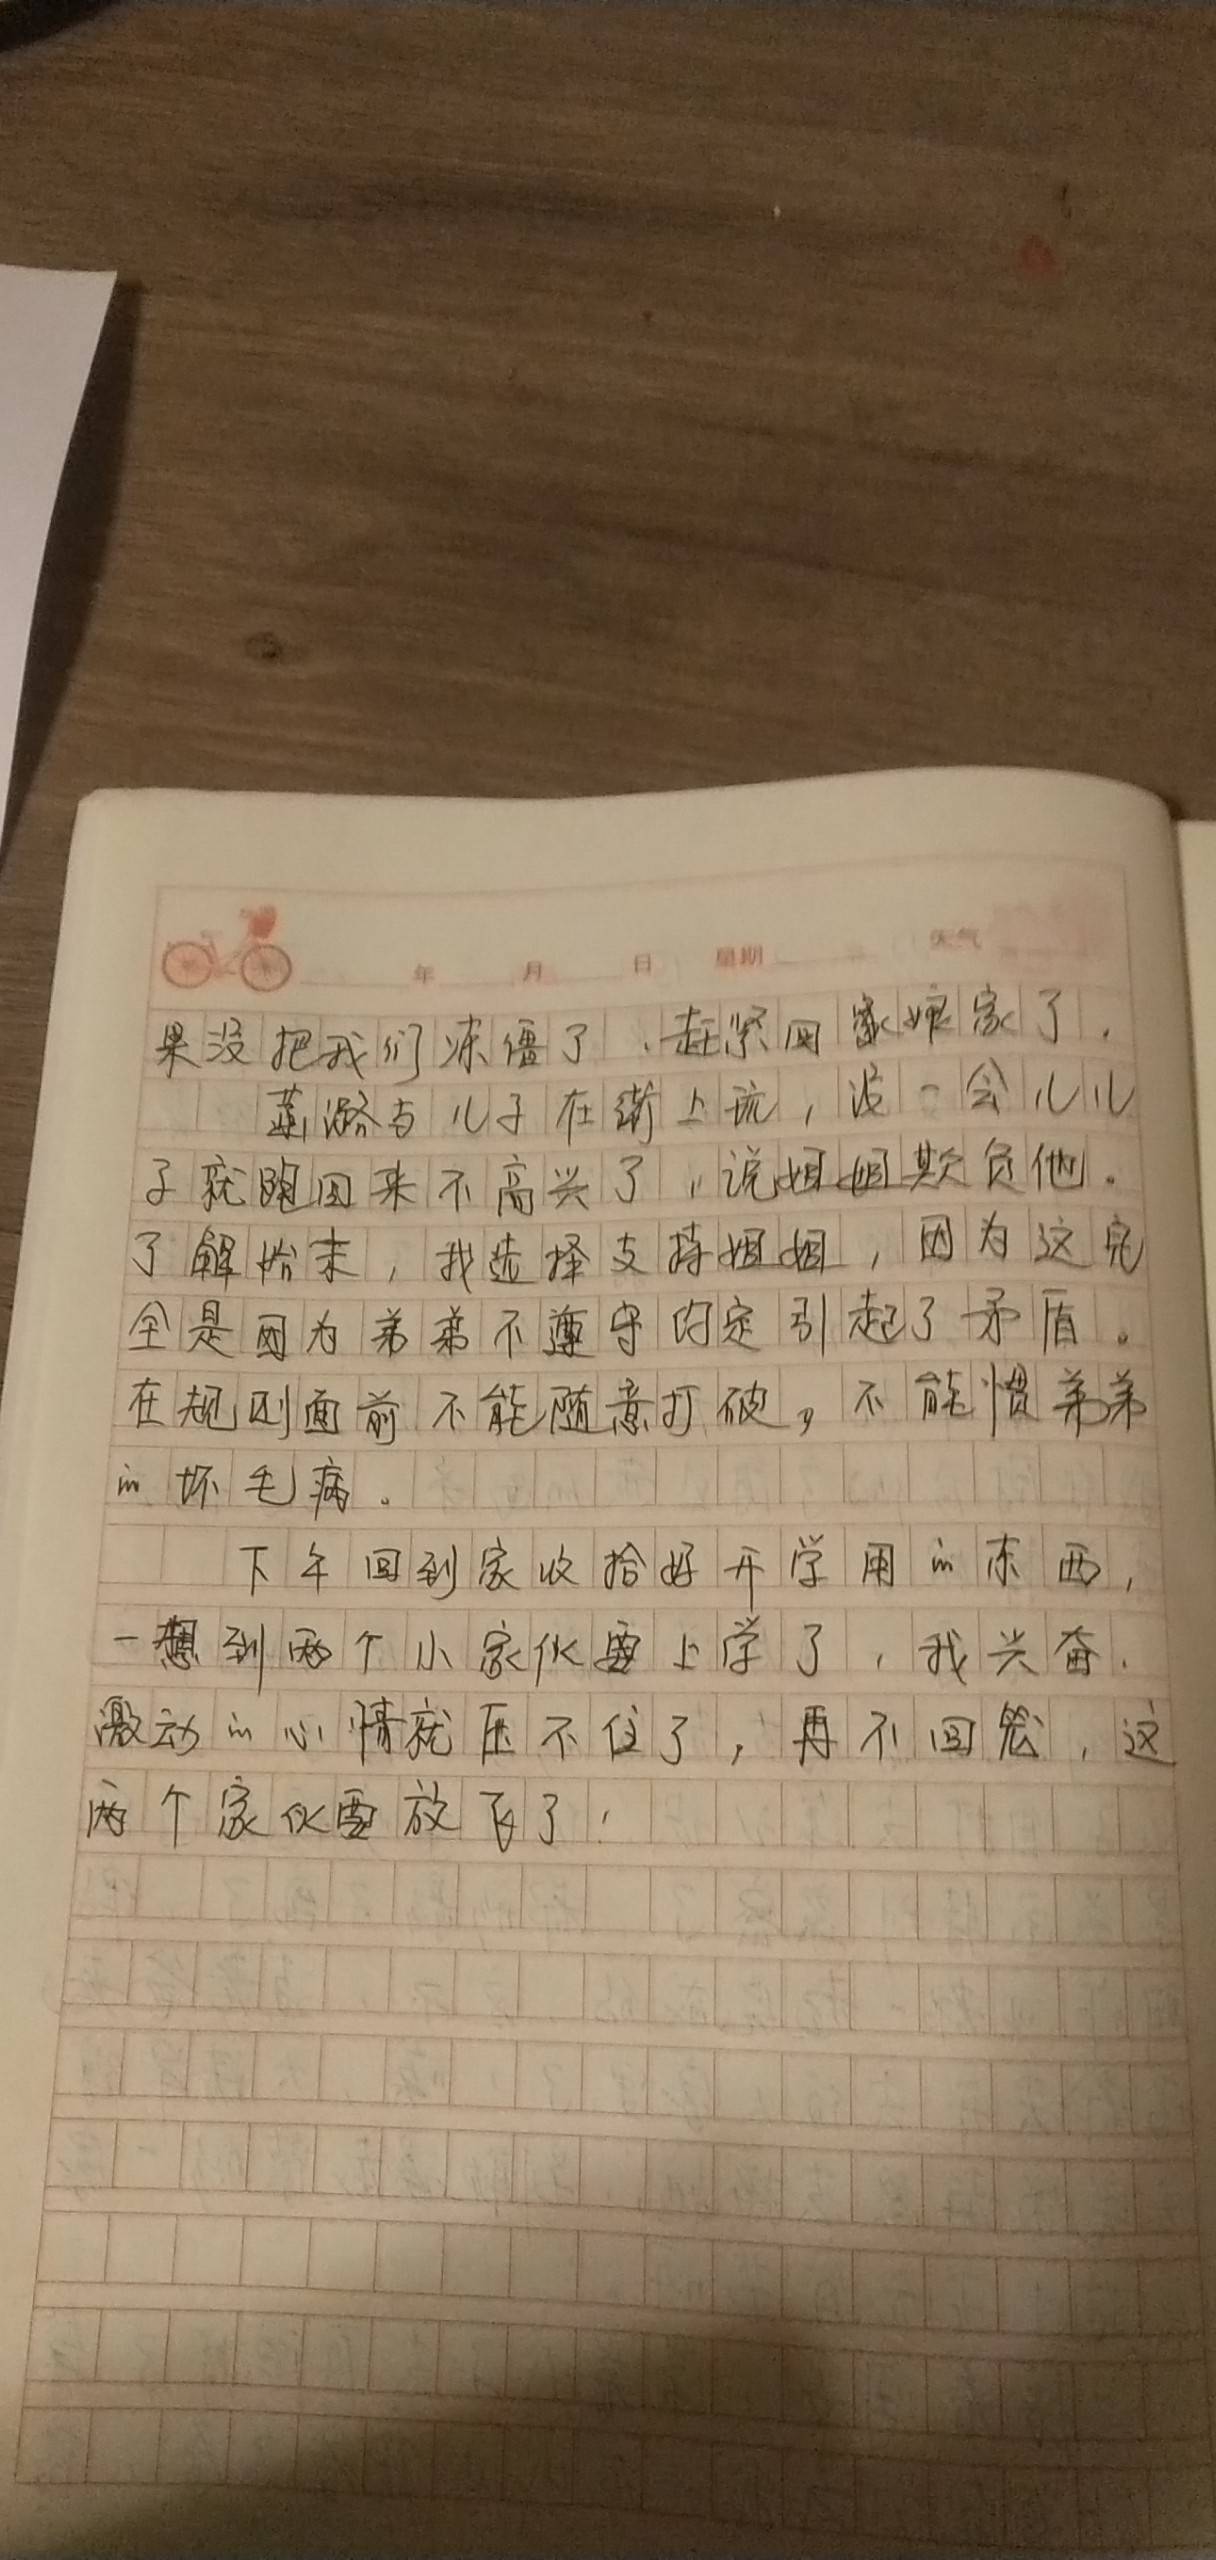 年 月 日 星期 天气
果没把我们冻僵了，赶紧回家娘家了.
潞与儿子在街上玩，没一会儿儿
子就跑回来不高兴了，说姐姐欺负他。
了解始末，我选择支持姐姐，因为这完
全是因为弟弟不遵守约定引起了矛盾。
在规则面前不能随意打破，不能惯弟弟
的坏毛病。
下午回到家收拾好开学用的东西，
一想到两个小家伙要上学了，我兴奋、
激动的心情就压不住了，再不回学，这
两个家伙要放飞了！